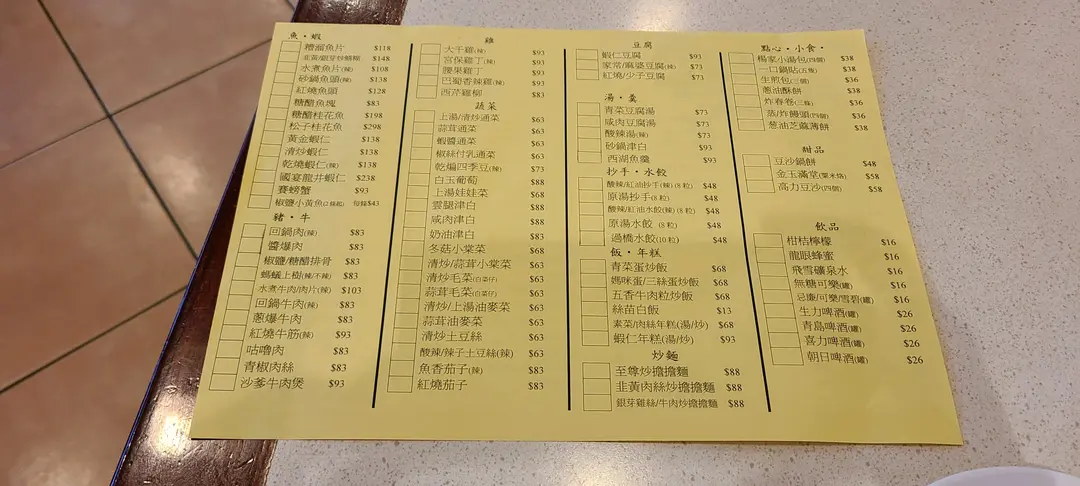 魚·蝦
糟溜魚片 $118
韭黃/銀芽炒鱔糊 $148
水煮魚片(辣) $108
砂鍋魚頭(辣) $138
紅燒魚頭 $128
糖醋魚塊 $83
糖醋桂花魚 $198
松子桂花魚 $298
黃金蝦仁 $138
清炒蝦仁 $138
乾燒蝦仁(辣) $138
國宴龍井蝦仁 $238
賽螃蟹 $93
椒鹽小黃魚(2條起) 每條$43
豬·牛
回鍋肉(辣) $83
醬爆肉 $83
椒鹽/糖醋排骨 $83
螞蟻上樹(辣/不辣) $83
水煮牛肉/肉片(辣) $103
回鍋牛肉(辣) $83
蔥爆牛肉 $83
紅燒牛筋(辣) $93
咕嚕肉 $83
青椒肉絲 $83
沙爹牛肉煲 $93
雞
大千雞(辣) $93
宮保雞丁(辣) $93
腰果雞丁 $93
巴蜀香辣雞(辣) $93
西芹雞柳 $83
蔬菜
上湯/清炒通菜 $63
蒜茸通菜 $63
蝦醬通菜 $63
椒絲付乳通菜 $63
乾煸四季豆(辣) $73
白玉葡萄 $88
上湯娃娃菜 $88
雲腿津白 $88
咸肉津白 $88
奶油津白 $83
冬菇小棠菜 $68
清炒/蒜茸小棠菜 $63
清炒毛菜(白菜仔) $63
蒜茸毛菜(白菜仔) $63
清炒/上湯油麥菜 $63
蒜茸油麥菜 $63
清炒土豆絲 $63
酸辣/辣子土豆絲(辣) $63
魚香茄子(辣) $83
紅燒茄子 $83
豆腐
蝦仁豆腐 $93
家常/麻婆豆腐(辣) $73
紅燒/少子豆腐 $73
湯·羹
青菜豆腐湯 $73
咸肉豆腐湯 $73
酸辣湯(辣) $73
砂鍋津白 $93
西湖魚羹 $93
抄手·水餃
酸辣/紅油抄手(辣)(8粒) $48
原湯抄手(8粒) $48
酸辣/紅油水餃(辣)(8粒) $48
原湯水餃 (8粒) $48
過橋水餃(10粒) $48
飯·年糕
青菜蛋炒飯 $68
媽咪蛋/三絲蛋炒飯 $68
五香牛肉粒炒飯 $68
絲苗白飯 $13
素菜/肉絲年糕(湯/炒) $68
蝦仁年糕(湯/炒) $93
炒麵
至尊炒擔擔麵 $88
韭黃肉絲炒擔擔麵 $88
銀芽雞絲/牛肉炒擔擔麵 $88
點心·小食·
楊家小湯包(四個) $38
一口鍋貼(五隻) $38
生煎包(三個) $36
蔥油酥餅 $38
炸春卷(三條) $36
蒸/炸饅頭(四個) $36
蔥油芝麻薄餅 $38
甜品
豆沙鍋餅 $48
金玉滿堂(粟米烙) $58
高力豆沙(四個) $58
飲品
柑桔檸檬 $16
龍眼蜂蜜 $16
飛雪礦泉水 $16
無糖可樂(罐) $16
忌廉/可樂/雪碧(罐) $16
生力啤酒(罐) $26
青島啤酒(罐) $26
喜力啤酒(罐) $26
朝日啤酒(罐) $26